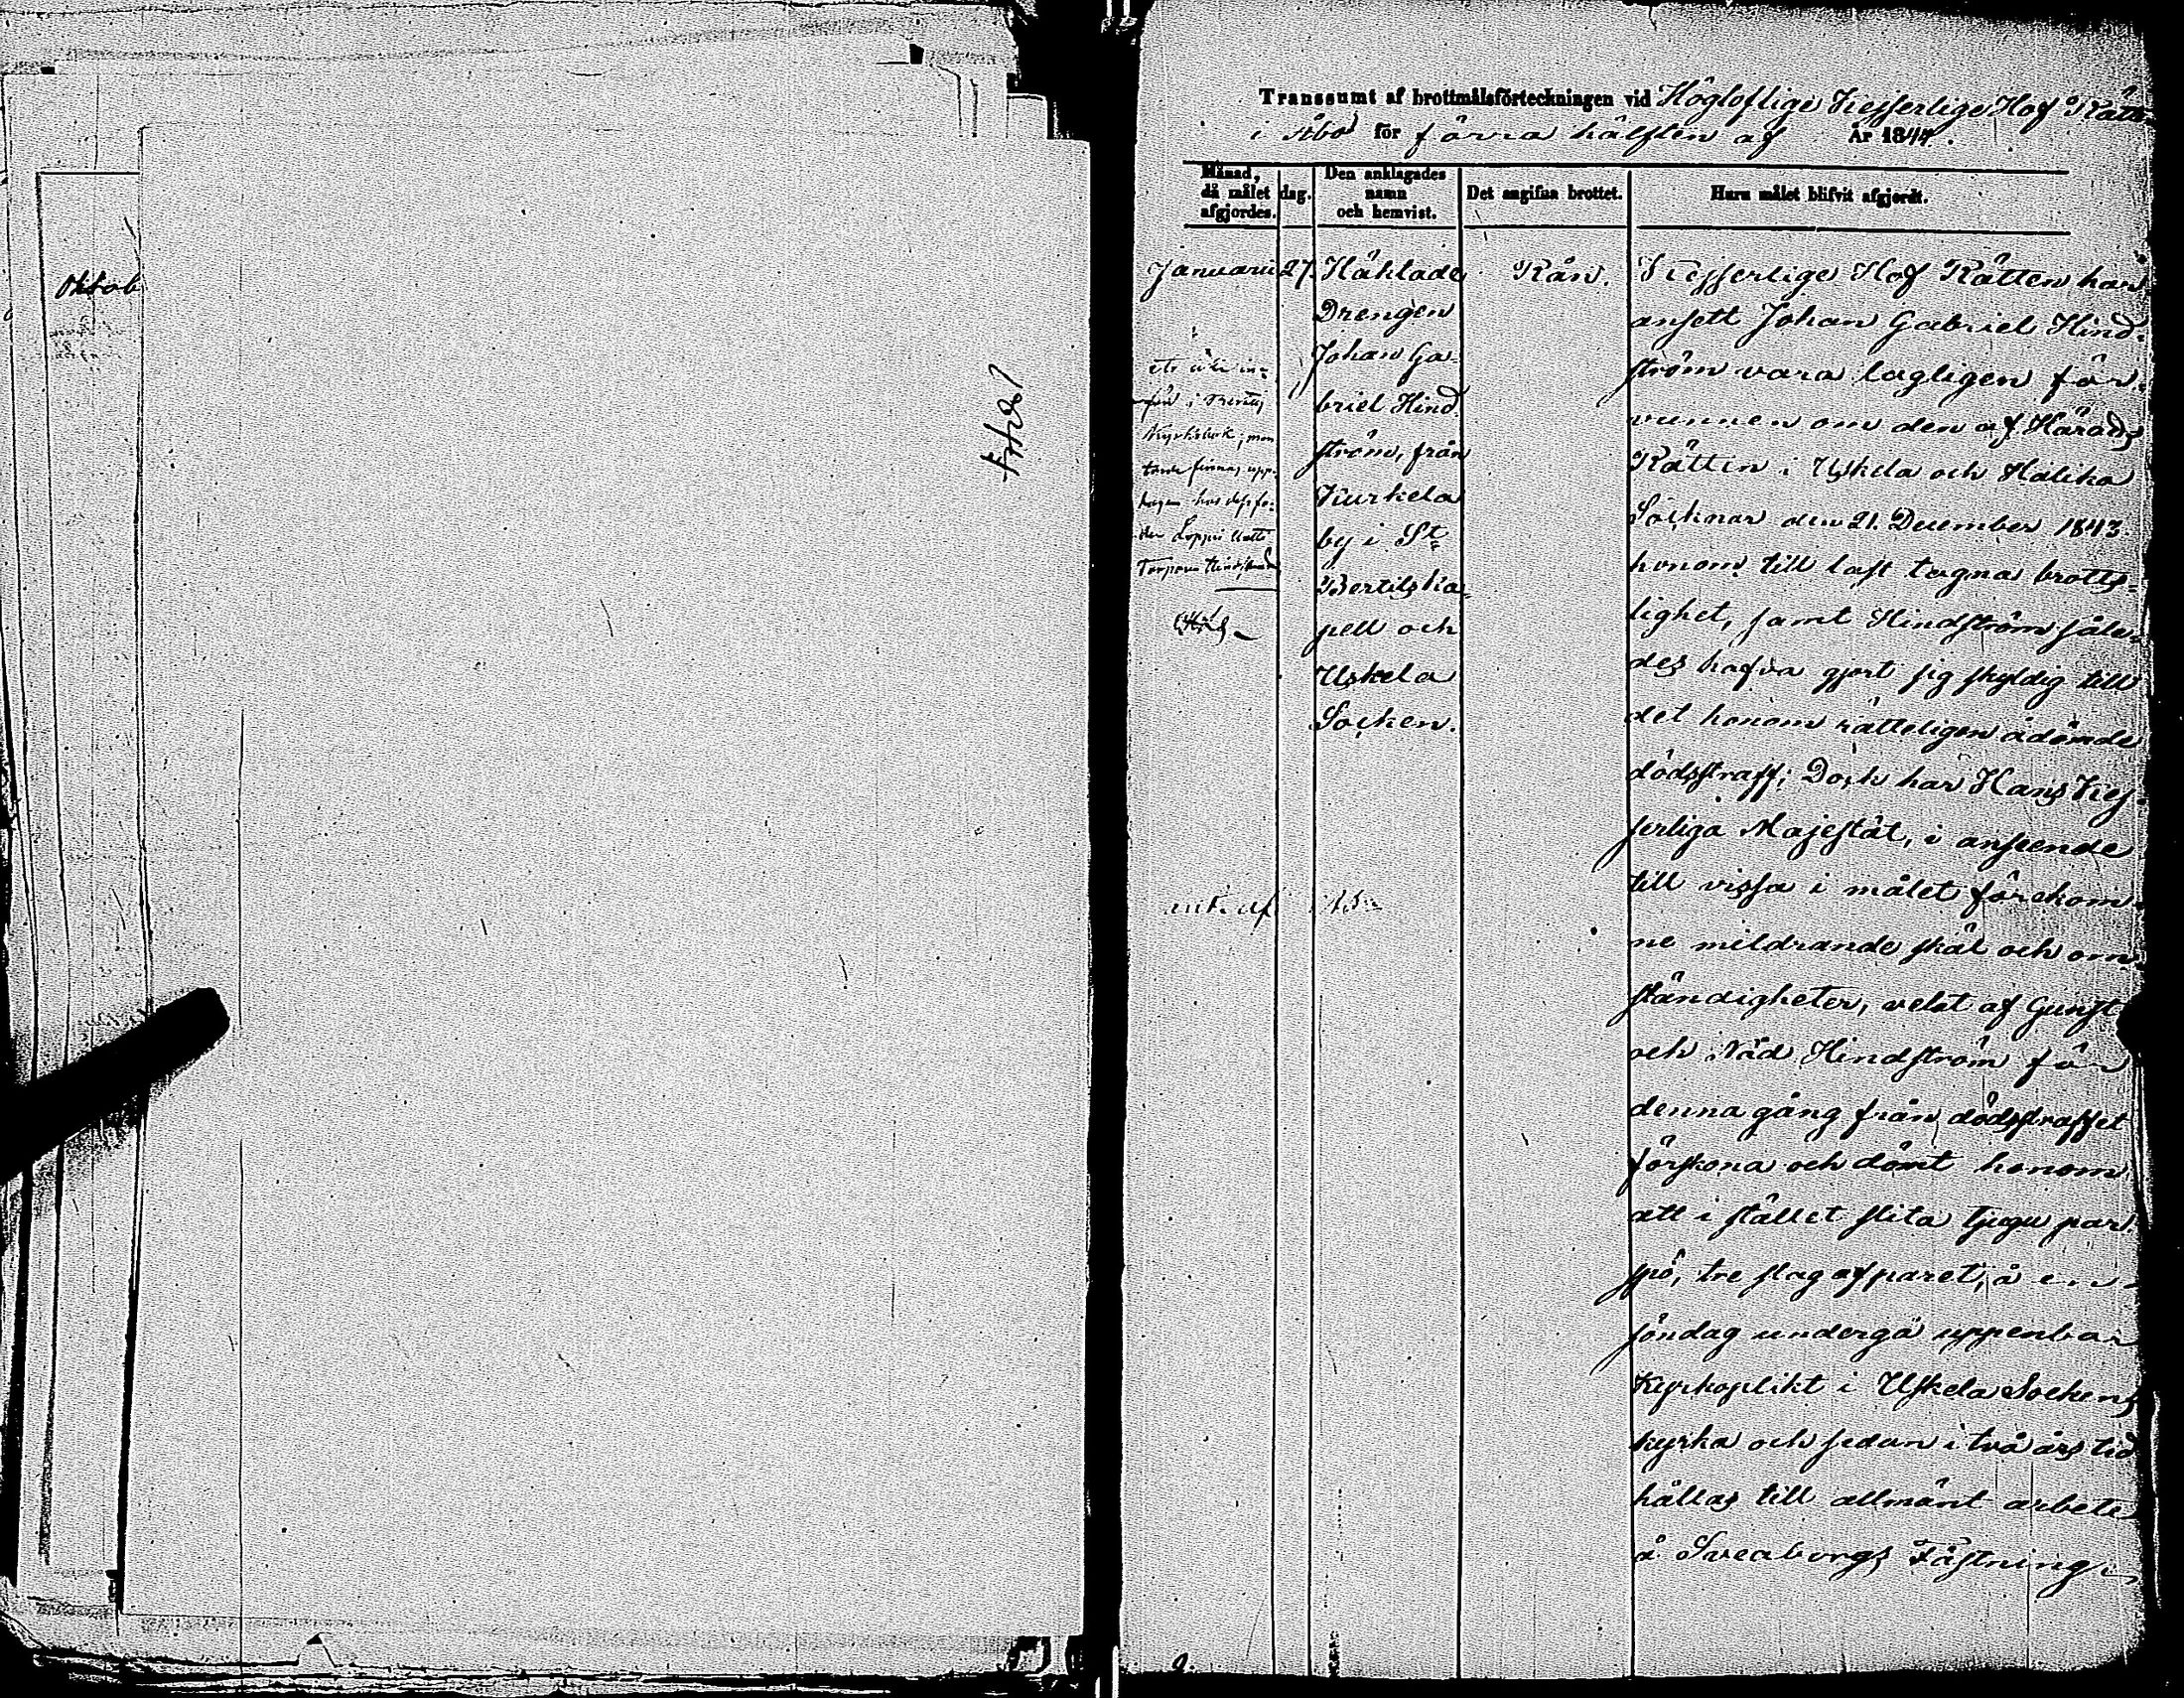 Oktob
Transsumt af brottmålsförteckningen vid Högloflige Kejserlige Hof Rätten
i Åbo för förra hälften af År 1844.
Månad,
då målet
afgjordes.
dag.
Den anklagades
namn
och hemvist.
Det angifna brottet.
Huru målet blifvit afgjordt.
Januarii 27.
Häktade
Drengen
Johan Ga-
briel Hind-
ström, från
Kurkela
by i St
Bertils ka-
pell och
Uskela
Socken.
Rån.
Kejserlige Hof Rätten har
ansett Johan Gabriel Hind-
ström vara lagligen för-
vunnen om den af Härads
Rätten i Uskela och Halika
Socknar den 21. December 1843.
honom till last tagna brotts-
lighet, samt Hindström såle-
des hafva gjort sig skyldig till
det honom rätteligen ådömde
dödsstraff; Dock har Hans Kej-
serliga Majestät, i anseende
till vissa i målet förekom-
ne mildrande skäl och om-
ständigheter, velat af Gunst
och Nåd Hindström för
denna gång från dödsstraffet
förskona och dömt honom
att i stället slita tjugu par
spö, tre slag af paret, å en
söndag undergå uppenbar
Kyrkoplikt i Uskela Sockens
kyrka och sedan i två års tid
hållas till allmänt arbete
å Sveaborgs Fästning.
i Bertils
Kyrkobok; men
torde finnas upp-
tagen hos dess fa-
der Loppis
Torparen Hindström